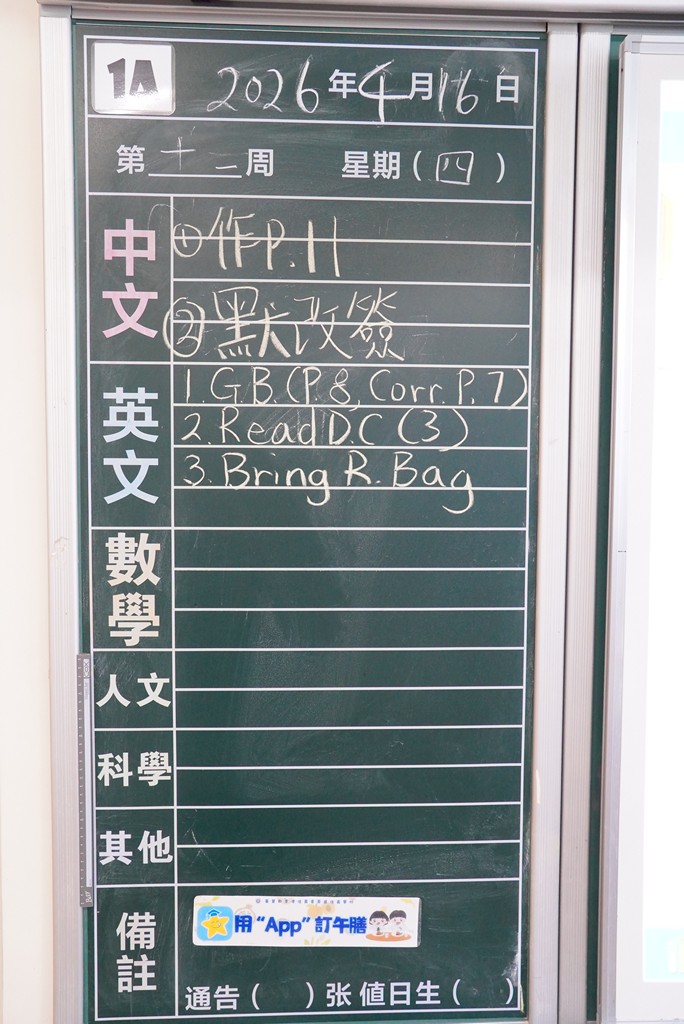 1A 2026年4月16日
第十二周 星期(四)
中文
①作P.11
②默改簽
英文
1.G.B.(P8, Corr.P.7)
2.Read D.C (3)
3.Bring R. Bag
數學
人文
科學
其他
備註
用“App”訂午膳
通告( )张 值日生( )